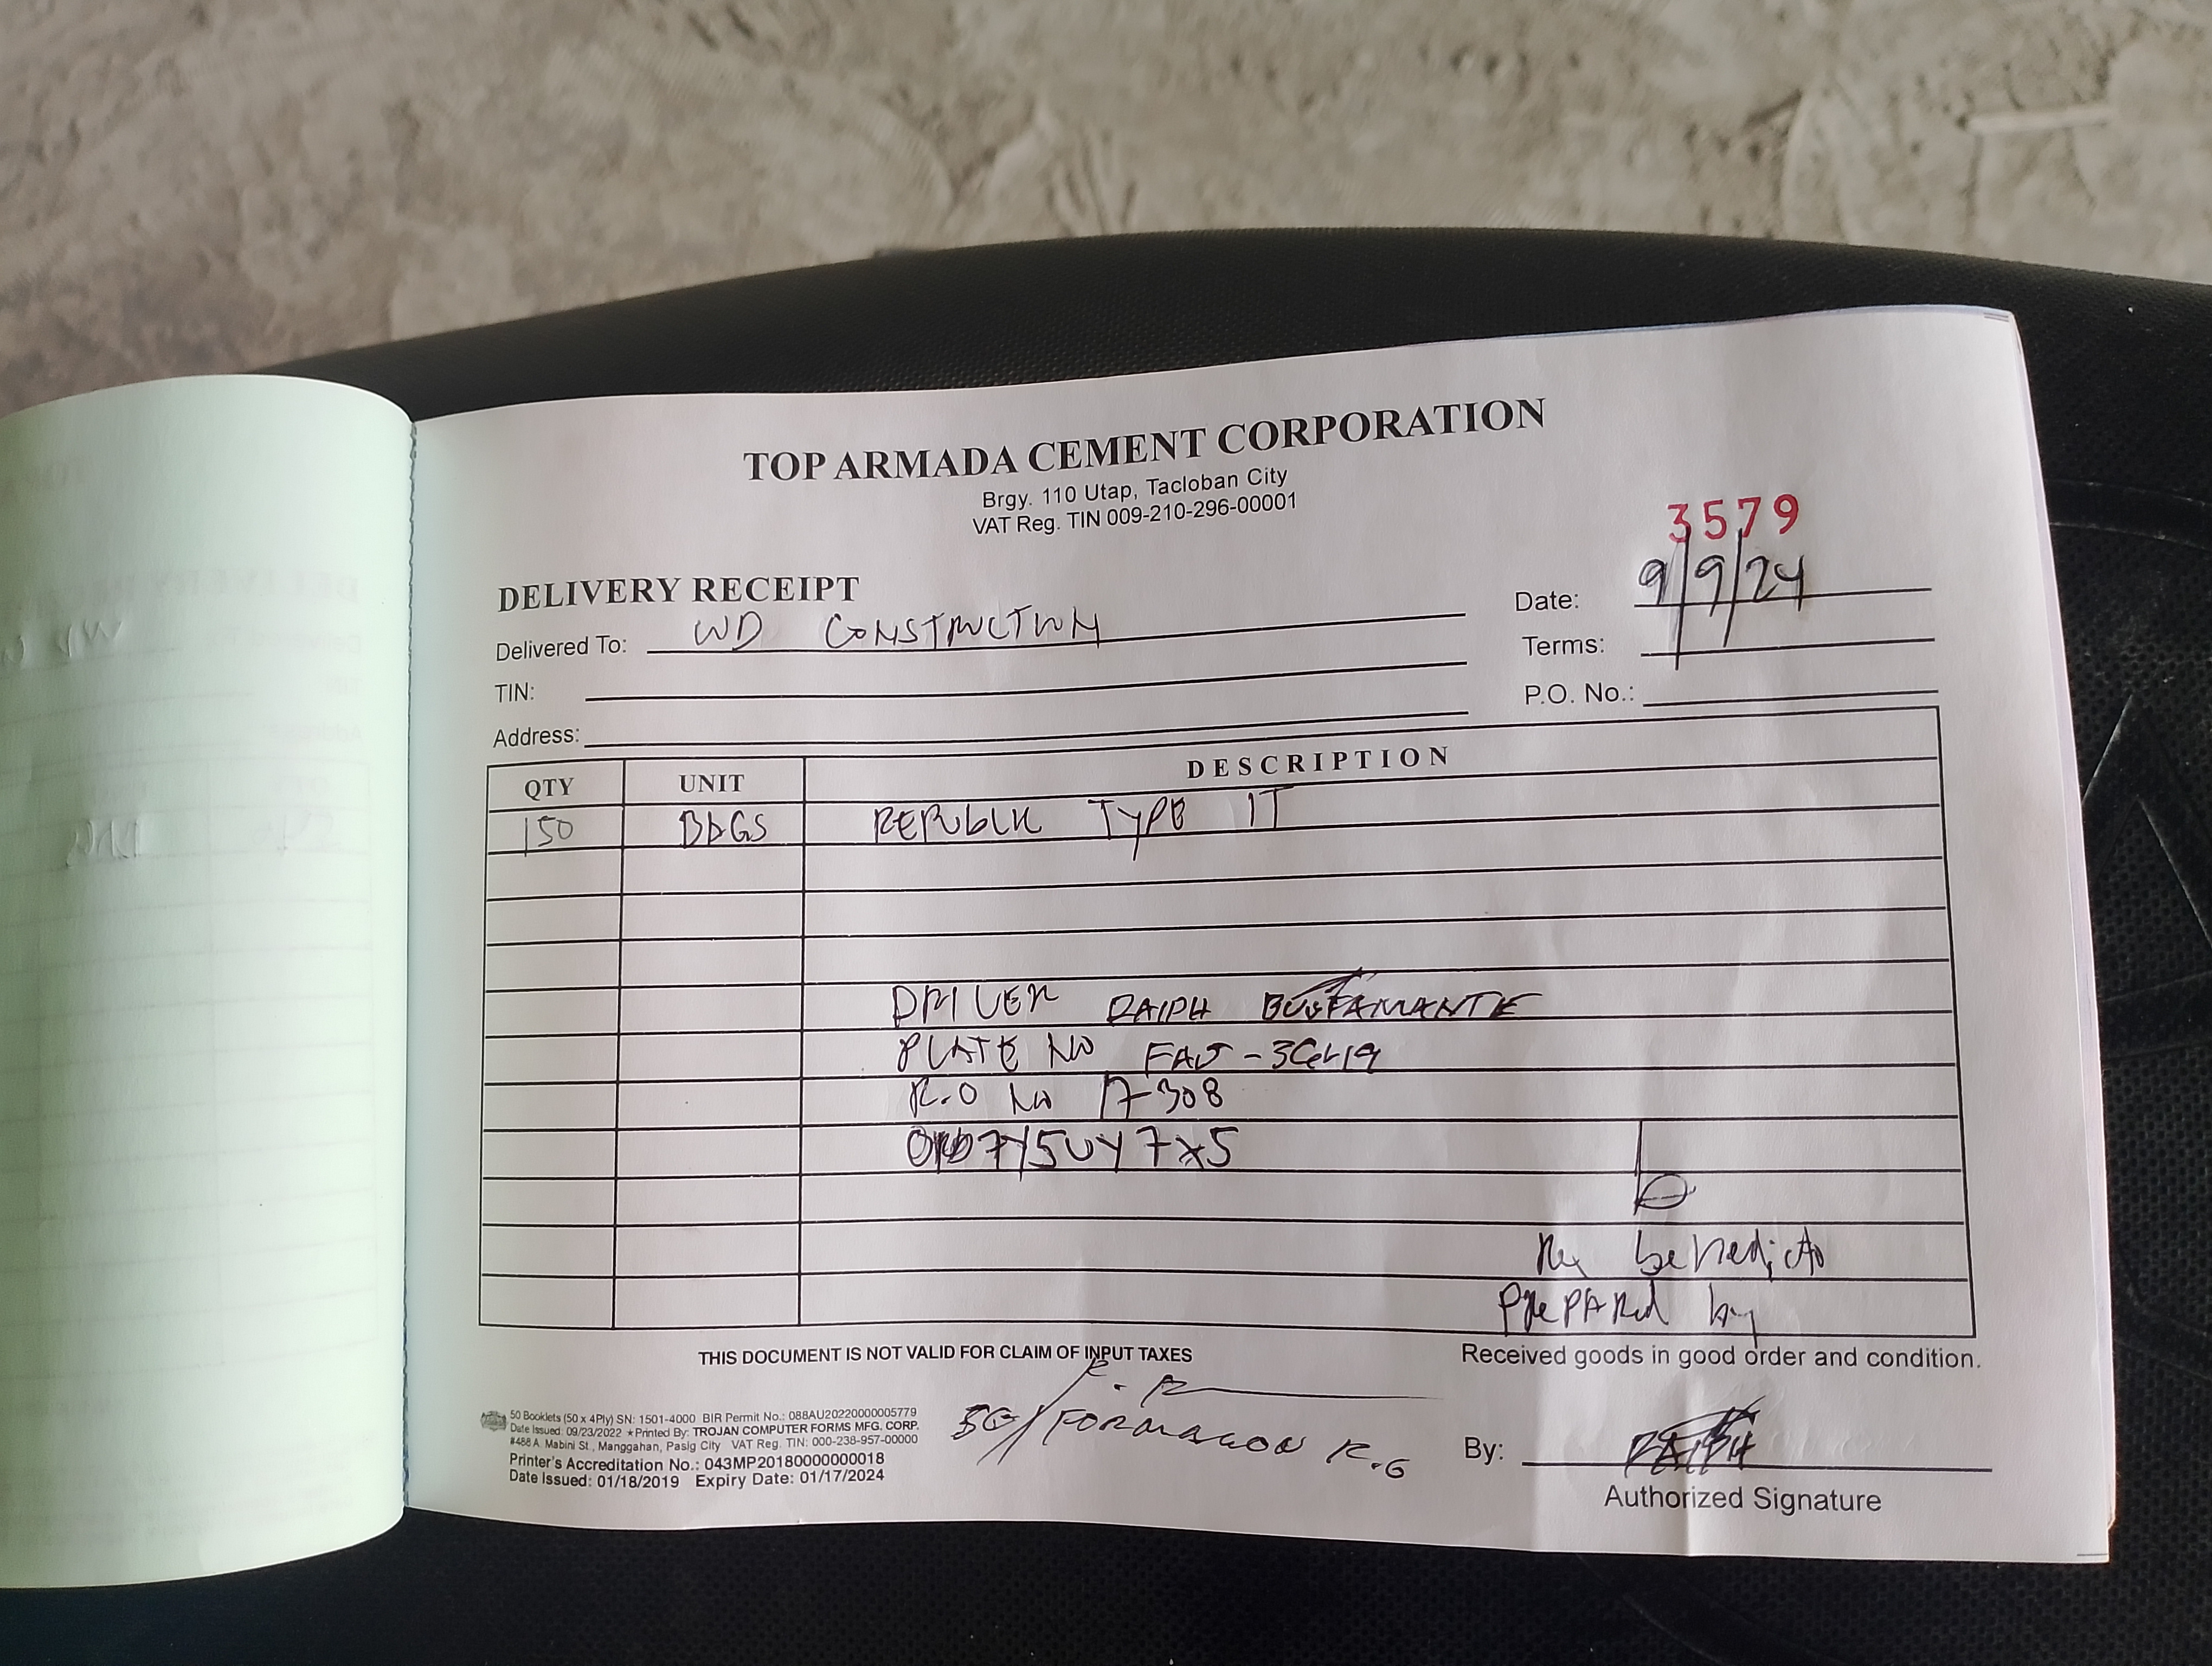 TOP ARMADA CEMENT CORPORATION
Brgy. 110 Utap, Tacloban City
VAT Reg. TIN 009-210-296-00001
3579
DELIVERY RECEIPT
Date: 9/9/24
Delivered To: WD CONSTRUCTION
Terms:
TIN:
P.O. No.:
Address:
QTY UNIT DESCRIPTION
150 BAGS REPUBLIC TYPE IT
DRIVER RALPH BUSTAMANTE
PLATE NO FAJ-
R.O No 17-308
7Y5UY7X5
benedicto
PREPARed by
THIS DOCUMENT IS NOT VALID FOR CLAIM OF INPUT TAXES
Received goods in good order and condition.
50 Booklets (50 x 4Ply) SN: 1501-4000 BIR Permit No.: 088AU20220000005779
Date Issued: 09/23/2022 ★Printed By: TROJAN COMPUTER FORMS MFG. CORP.
#488 A. Mabini St., Manggahan, Pasig City VAT Reg. TIN: 000-238-957-00000
Printer's Accreditation No.: 043MP20180000000018
Date Issued: 01/18/2019 Expiry Date: 01/17/2024
SG/ R.G
By: RALPH
Authorized Signature